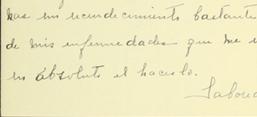 has un recrudecimiento bastante
de mis enfermedades que me
en absoluto el hacerlo.
Saboud